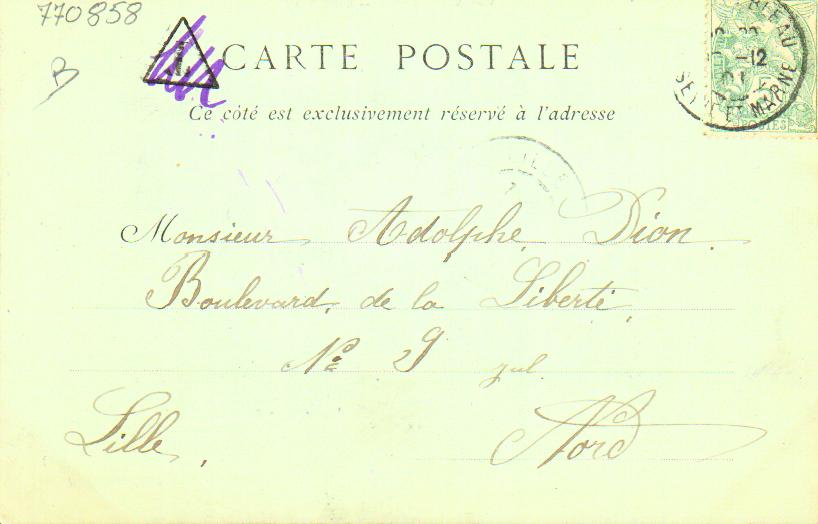 770858
B
T
CARTE POSTALE
Ce côté est exclusivement réservé à l'adresse
-12
01
SEINE ET MARNE
POSTES
LILLE
Monsieur Adolphe Dion
Boulevard de la Liberté,
No 29
Lille,
Nord